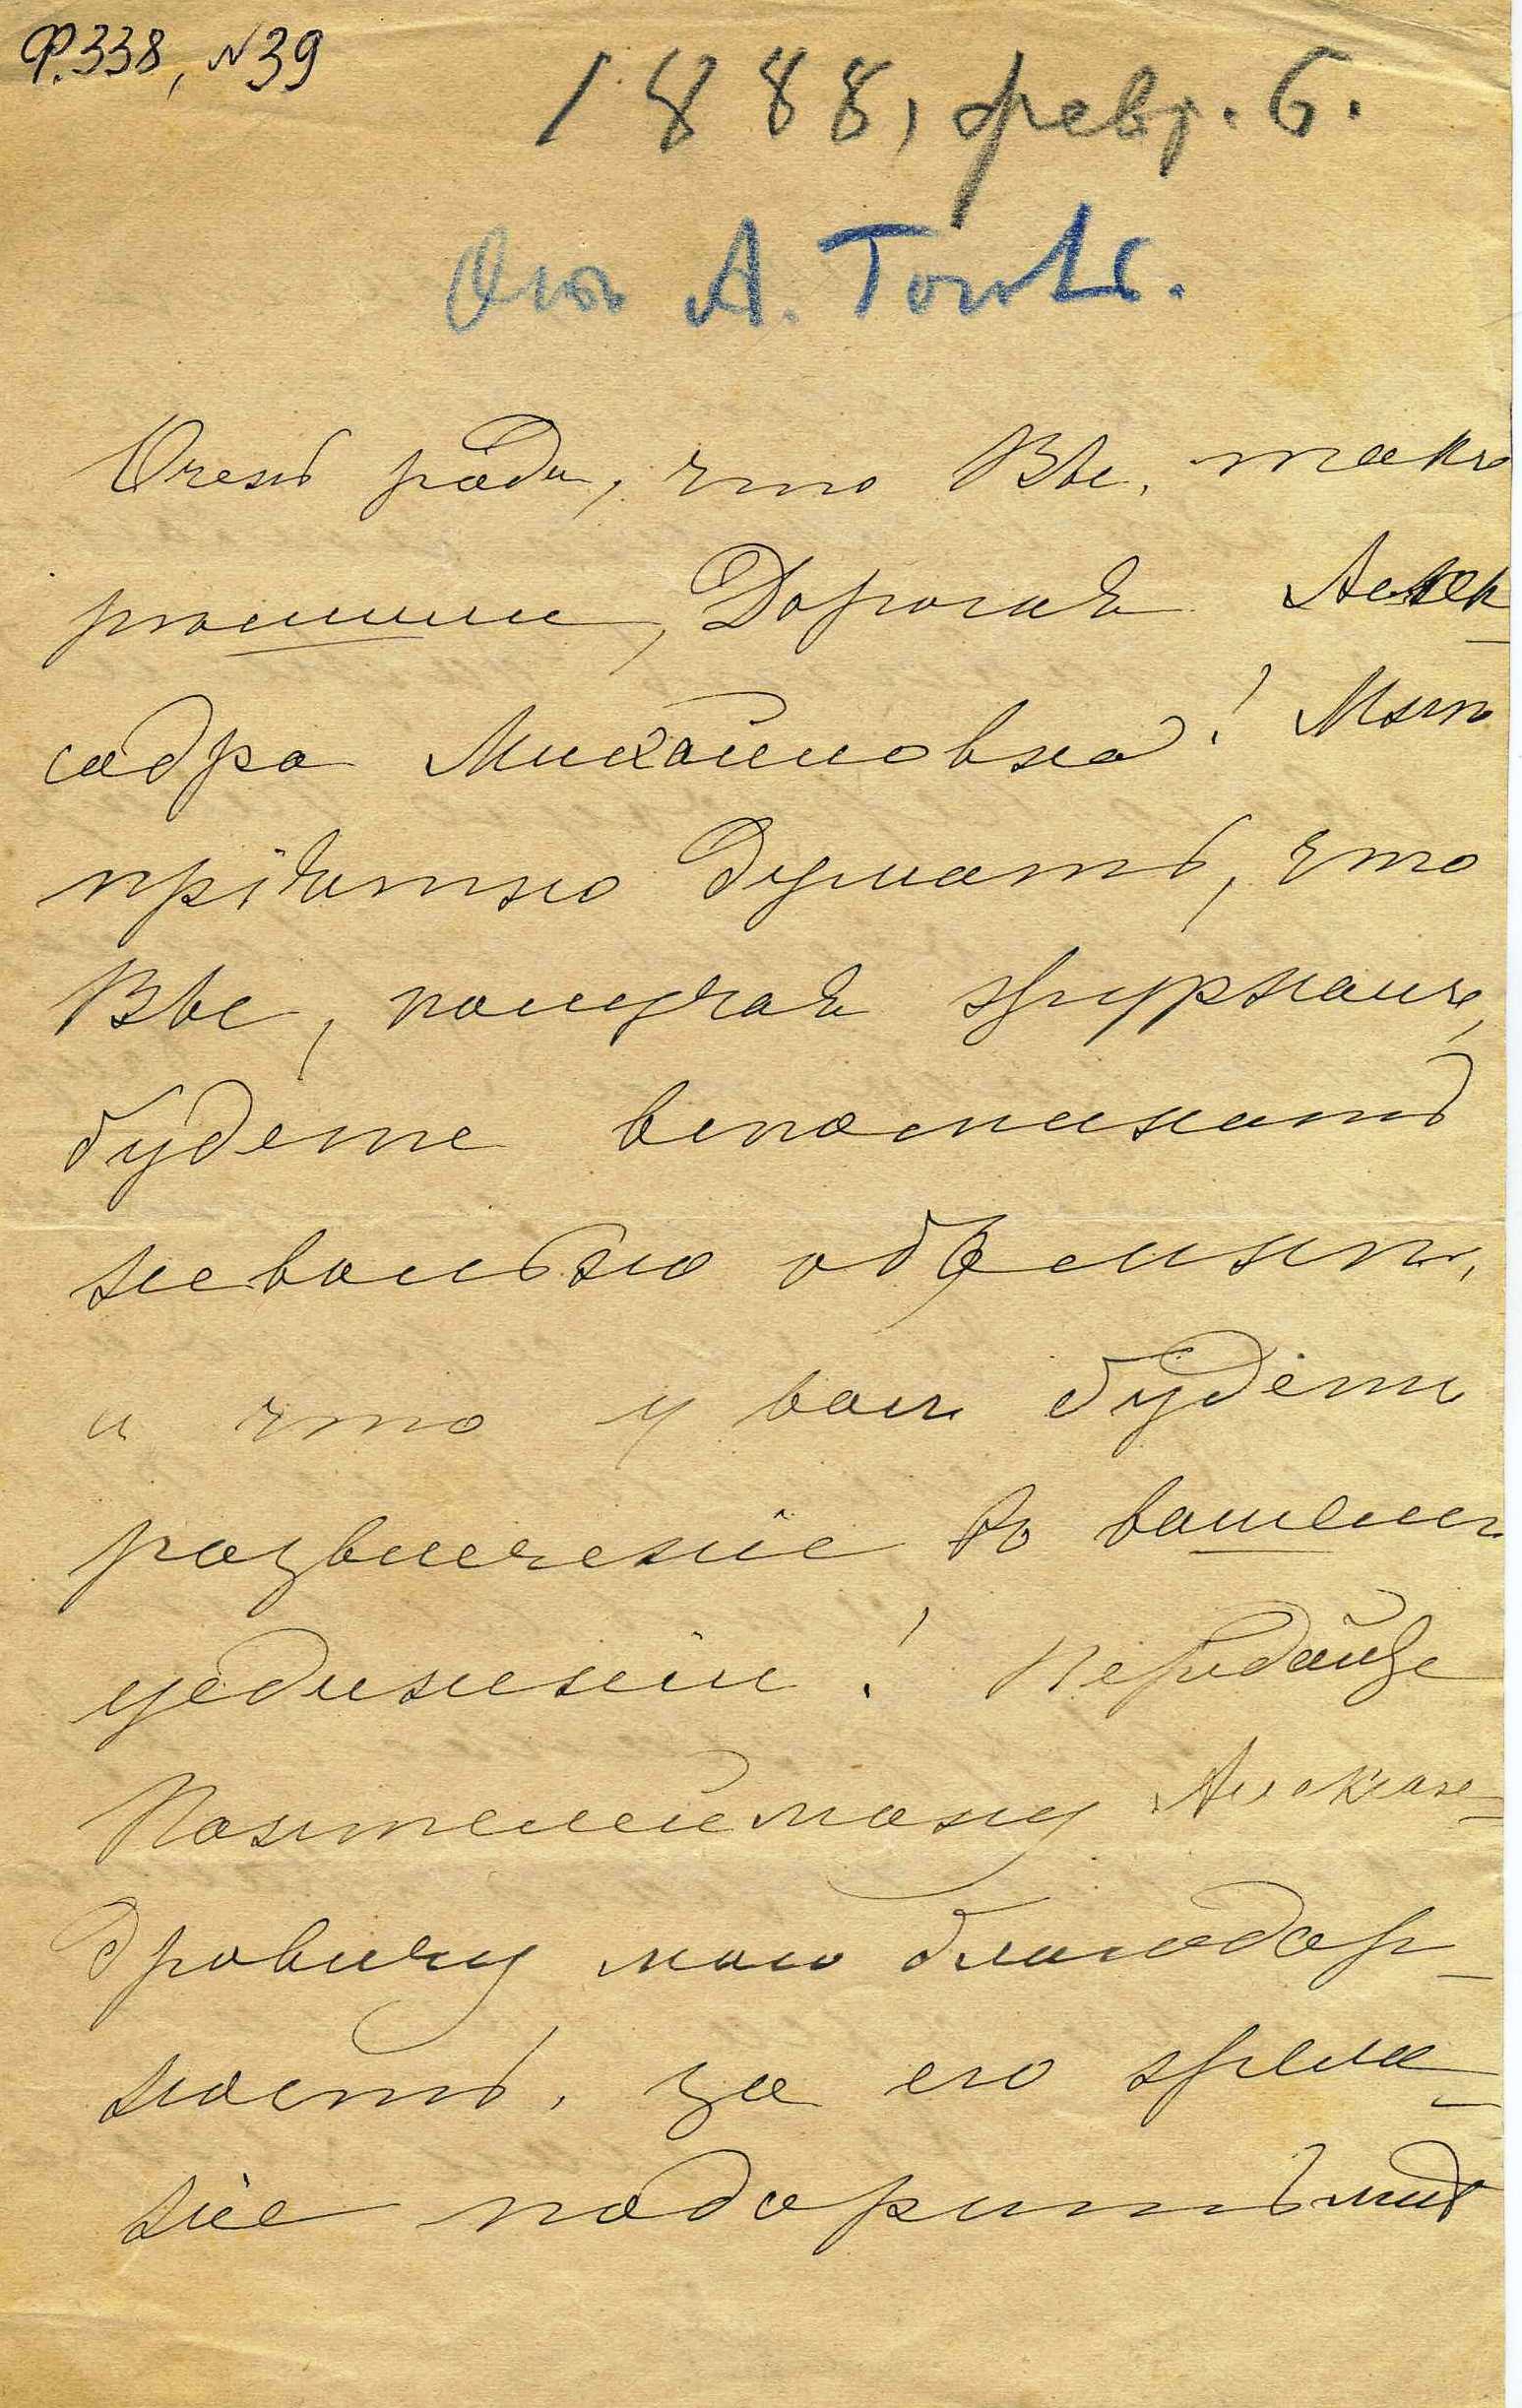 Ф. 338, №39
1888, февр. 6.
От А.
Очень рада, что Вы, такъ
рѣшили, Дорогая Алек-
садра Михайловна! Мнѣ
пріятно думать, что
Вы, получая журналъ,
будете вспоминать
невольно обо мнѣ,
и что у васъ будетъ
развлеченіе въ вашемъ
уединеніи! Передайте
Пантелеймону Алексан-
дровичу мою благодар-
ность, за его жела-
ніе подарить мнѣ